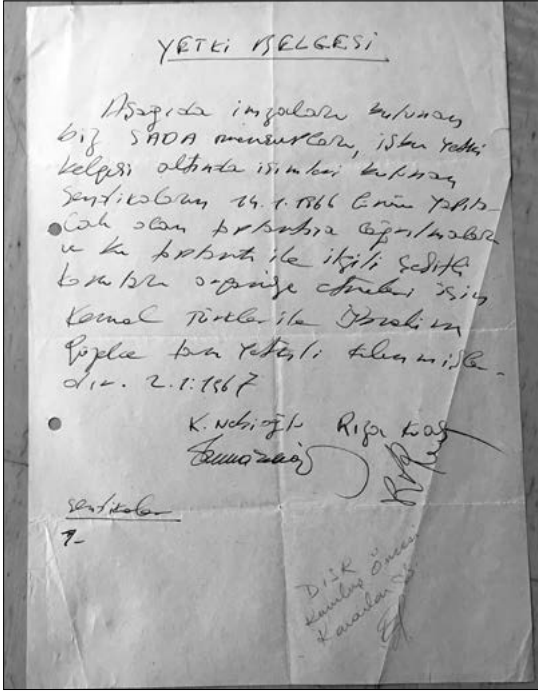 YETKİ BELGESİ
Aşağıda imzaları bulunan
biz SADA mensupları, işbu yetki
belgesi altında isimleri bulunan
sendikaların 14.1.1966 günü yapıla-
cak olan toplantıya çağrılmaları
ve bu toplantı ile ilgili çeşitli
konuları organize etmeleri için
Kemal Türkler ile İbrahim
Güzelce tam yetkili kılınmışlar-
dır. 2.1.1967
K. Nebioğlu Rıza Kuas
Sendikalar
1-
DİSK
Kuruluş Öncesi